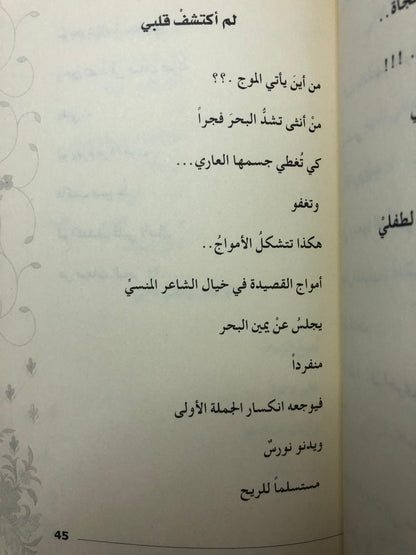 لم أكتشفْ قلبي
من أينَ يأتي الموج .؟؟
منْ أنثى تشدُّ البحرَ فجراً
كي تُغطي جسمها العاري...
وتغفو
هكذا تتشكلُ الأمواجُ..
أمواج القصيدة في خيال الشاعر المنسيْ
يجلسُ عنْ يمين البحر
منفرداً
فيوجعه انكسار الجملة الأولى
ويدنو نورسٌ
مستسلماً للريح
45
. !!!
لطفليْ